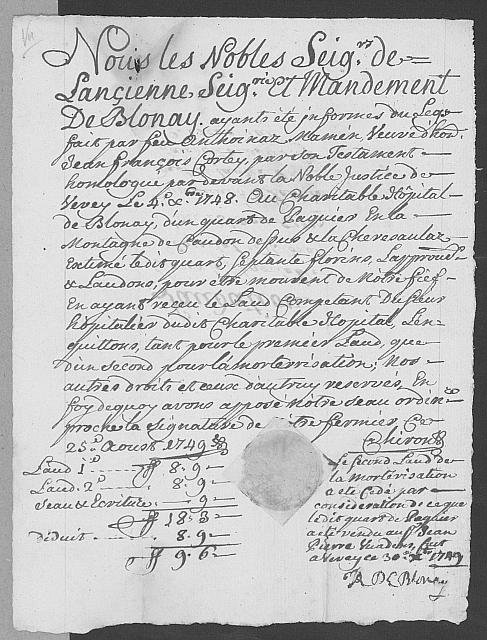 Nous les Nobles Seig.rs de
Lançienne Seig.rie et Mandement
De Blonay. ayants été informés du Leg
fait par feu Anthoinaz Mamin, Veuve d'hon.
Jean François Corley, par son Testament
homologué par devant la Noble Justice de
Vevey Le 4.e X.bre 1748. Au Charitable Hôpital
de Blonay, d'un quart de Paquier En la
Montagne de Caudon dessus & la Cheresaulaz
Extimé le dit quart, Septante florins, L'approuv.s
& Laudons, pour être mouvent de Notre fief
En ayant reçeu le Laud Competant Du Sieur
hôpitalier du dit Charitable Hopital, L'en
quittons, tant pour le premier Laud, que
d'un second pour la mortarisation; Nos
autres droits et ceux d'autruy reservés, En
foy de quoy avons apposé Notre seau ordin.re
proche la signature de Nôtre fermier, Ce
25.e Aoust 1749
Chiron
Laud 1.r ------ ff 8. 9
Laud. 2.d ------ 8. 9
Seau & Ecriture. --- 9
ff 18. 3
Déduit ------ 8. 9
ff 9. 6
Le second Laud de
la Mortarisation
a été Cedé par
consideration de ce que
le dit quart de Paquier
a été vendu au S.r Jean
Pierre
a Vevey ce 30.e X.bre 1749
De Blonay